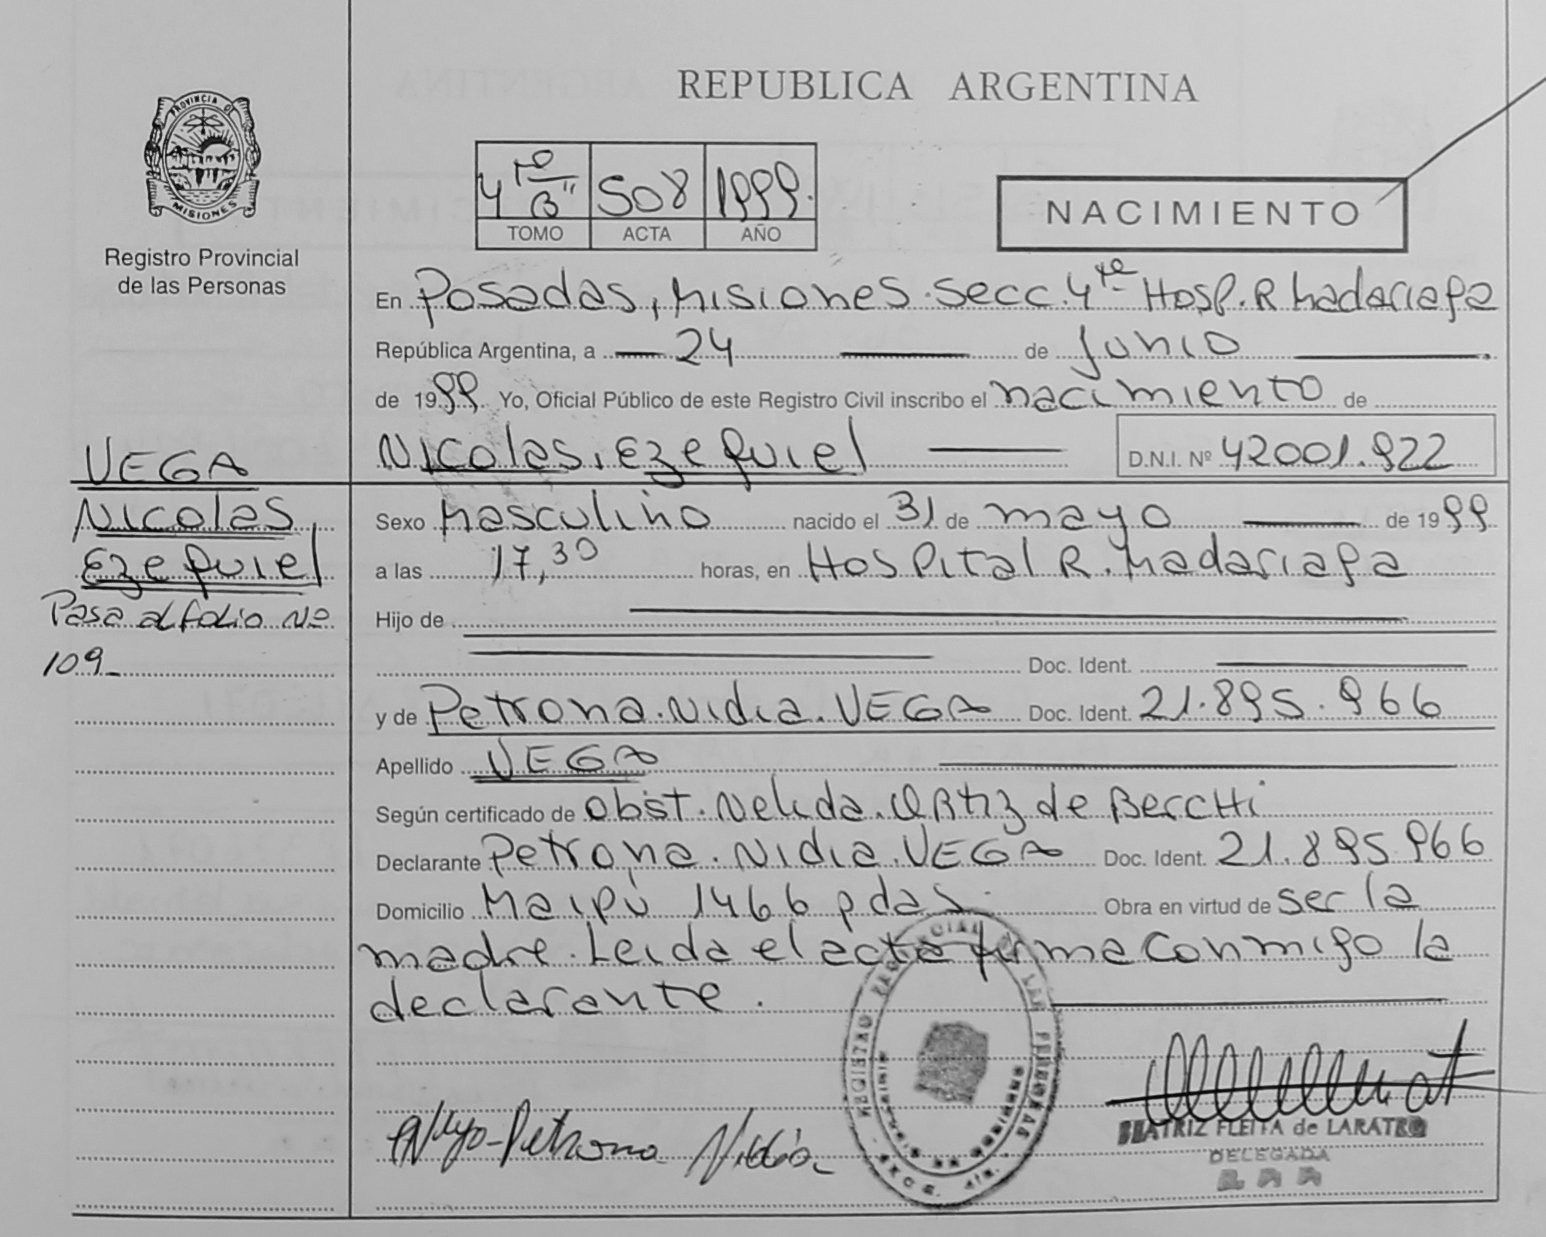 REPUBLICA ARGENTINA
PROVINCIA DE
MISIONES
Registro Provincial
de las Personas
4ta "B" 508 1999.
TOMO ACTA AÑO
NACIMIENTO
En Posadas, Misiones. Secc. 4ta Hosp. R Madariaga
República Argentina, a 24 de Junio
de 1999 Yo, Oficial Público de este Registro Civil inscribo el nacimiento de
Nicolas, Ezequiel D.N.I. Nº 42001.922
VEGA
Nicolas,
Ezequiel
Pasa al folio Nº
109
Sexo Masculino nacido el 31 de mayo de 1999
a las 17,30 horas, en Hospital R. Madariaga
Hijo de
Doc. Ident.
y de Petrona. Nidia. VEGA Doc. Ident. 21.895.966
Apellido VEGA
Según certificado de Obst. Nelida. ORtiz de BeccHi
Declarante Petrona. Nidia. VEGA Doc. Ident. 21.895966
Domicilio Maipú 1466 pdas. Obra en virtud de ser la
madre. Leida el acta firma conmigo la
declarante.
REGISTRO PROVINCIAL DE LAS PERSONAS
Petrona Nidia
BEATRIZ FLEITA de LARATRO
DELEGADA